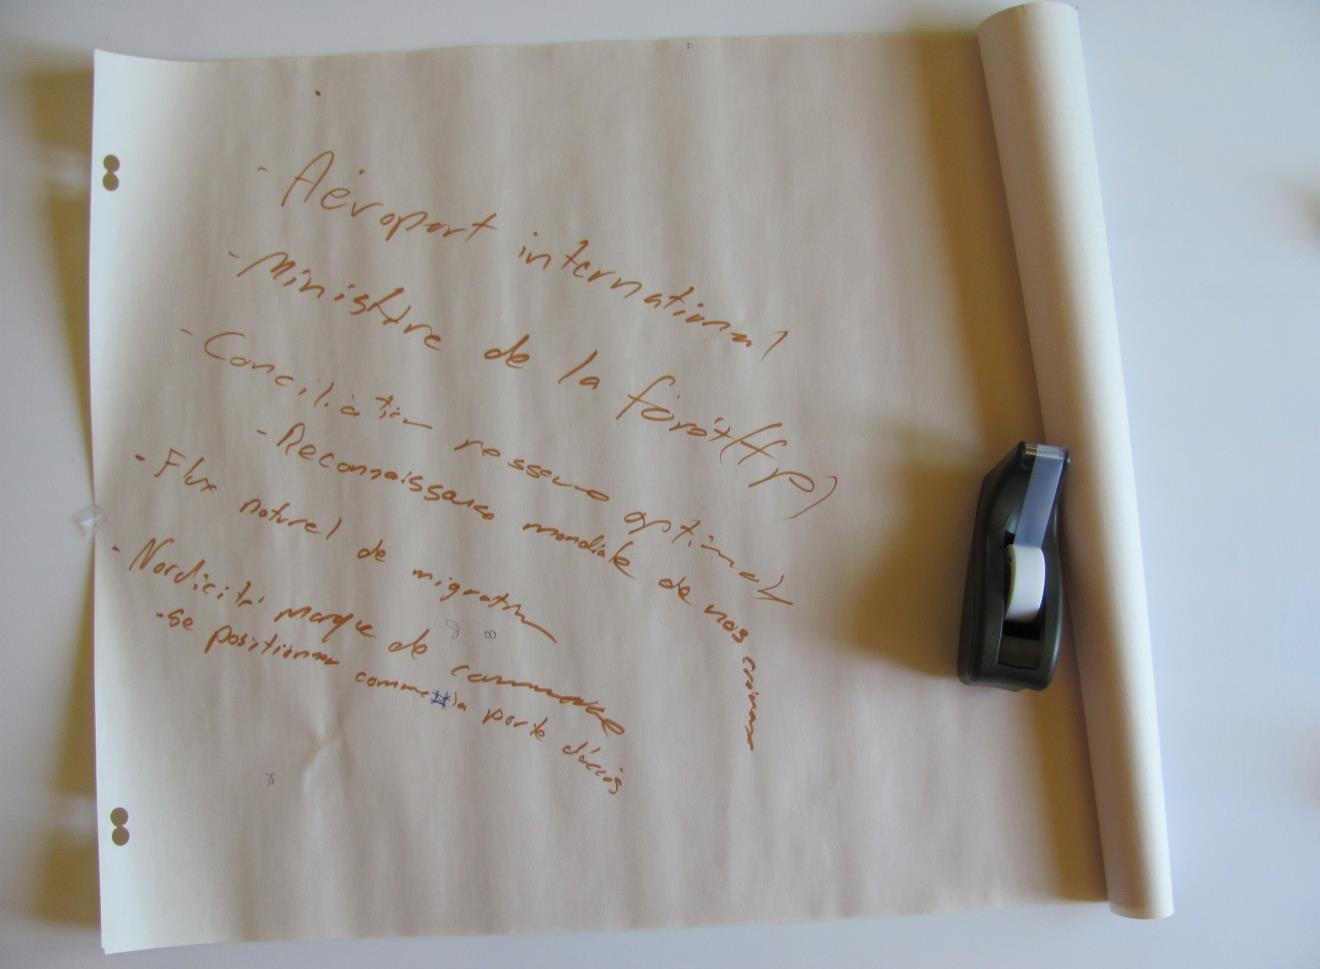 - Aéroport international
- Ministère de la forêt (fp)
- Conciliation ressource optimale
- Reconnaissance mondiale de nos
- Flux naturel de migration
- Nordicité marque de commerce
- se positionner comme la porte d'accès